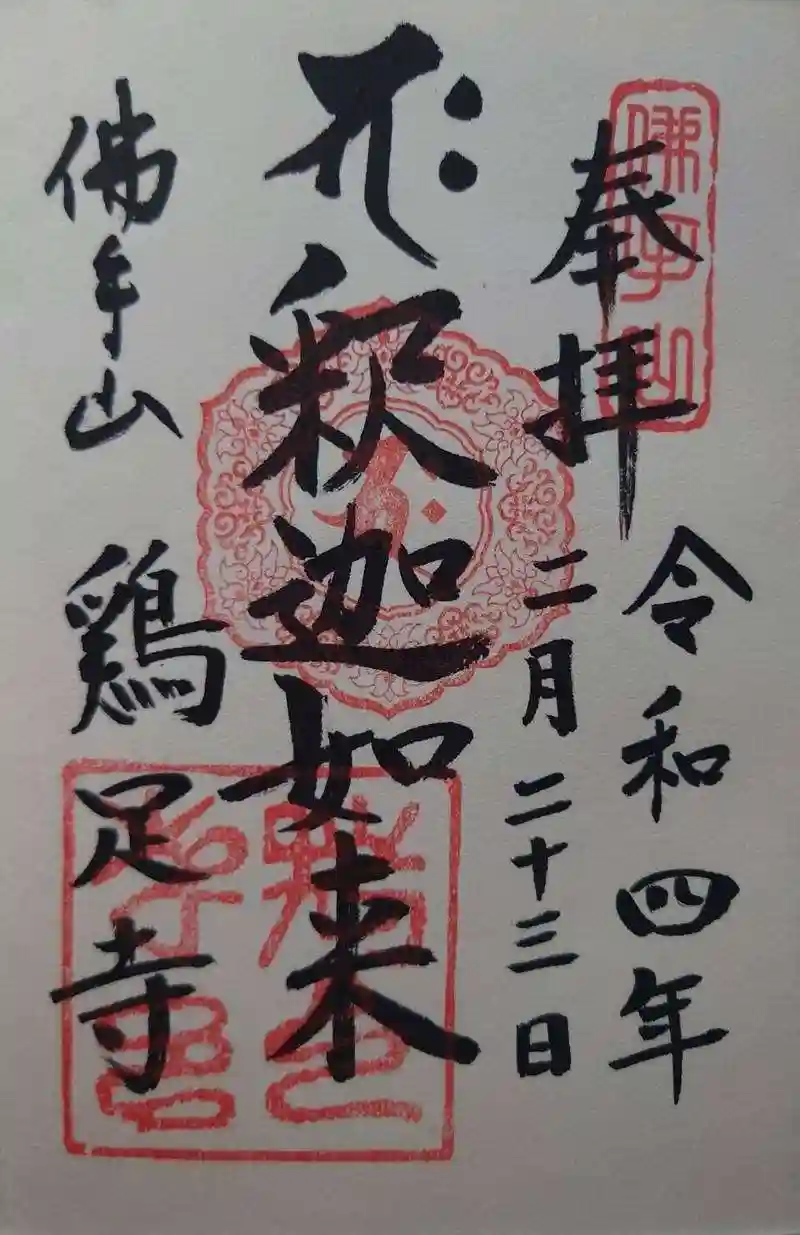 奉拝
令和四年
二月二十三日
𑖥𑖾 釈迦如来
佛手山 鶏足寺
佛手山